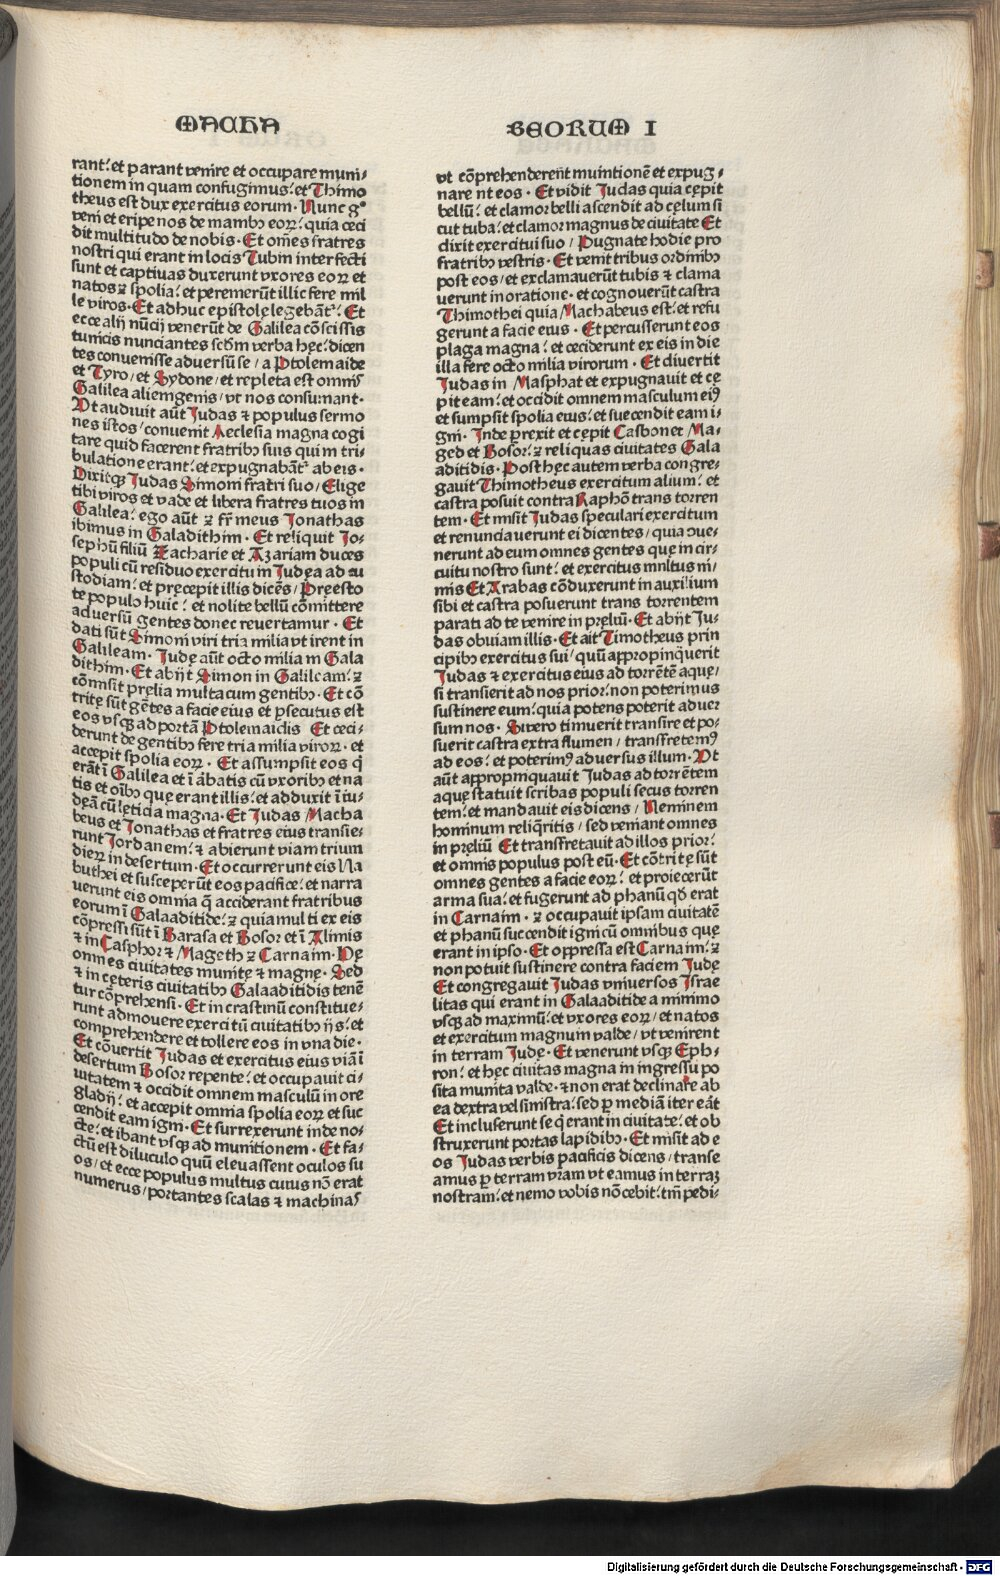 MACHA
BEORUM I
rant: et parant venire et occupare muni/
tionem in quam confugimus: et Thimo
theus est dux exercitus eorum. Nunc gᵒ
veni et eripe nos de manibꝰ eoꝝ: quia ceci
dit multitudo de nobis. Et om̃es fratres
nostri qui erant in locis Tubin interfecti
sunt et captivas duxerunt vxores eoꝝ et
natos ⁊ spolia: et peremerūt illic fere mil
le viros. Et adhuc epistolę legebāt: Et
ecce alij nūcij venerūt de Galilea cōscissis
tunicis nunciantes scd̄m verba hęc: dicen
tes convenisse adversū se / a Ptolemaide
et Tyro / et Sydone / et repleta est omnis
Galilea aliemgenis / vt nos consumant.
Vt audivit aūt Judas ⁊ populus sermo
nes istos / convenit Aeclesia magna cogi
tare quid facerent fratribꝰ suis qui in tri/
bulatione erant: et expugnabāt ab eis.
Dixitqꝫ Judas Simoni fratri suo / Elige
tibi viros et vade et libera fratres tuos in
Galilea: ego aūt ⁊ fr̄ meus Jonathas
ibimus in Galadithim. Et reliquit Jo/
sephū filiū Zacharie et Azariam duces
populi cū residuo exercitu in Judęa ad cu
stodiam: et pręcepit illis dicēs / Pręesto
te populo huic: et nolite bellū cōmittere
adversū gentes donec revertamur. Et
dati sūt Simoni viri tria milia vt irent in
Galileam. Judę aūt octo milia in Gala
dithim. Et abijt Simon in Galileam: ⁊
cōmisit pręlia multa cum gentibꝰ. Et cō
tritę sūt gētes a facie eius et ꝑsecutus est
eos vsqꝫ ad portā Ptolemaidis Et ceci/
derunt de gentibꝰ fere tria milia viroꝝ. et
accepit spolia eoꝝ. Et assumpsit eos q̄
erāt ī Galilea et ī ābatis cū vxoribꝰ et na
tis et oībꝰ quę erant illis: et adduxit ī iu/
dęā cū lęticia magna. Et Judas Macha
beus et Jonathas et fratres eius transie/
runt Jordanem: ⁊ abierunt viam trium
dieꝝ in desertum. Et occurrerunt eis Na
buthei et susceperūt eos pacifice: et narra
verunt eis omnia q̄ acciderant fratribus
eorum ī Galaaditide: ⁊ quia multi ex eis
cōpressi sūt ī Barasa et Bosor et ī Alimis
⁊ in Casphor ⁊ Mageth ⁊ Carnaim. Hę
omnes civitates munitę ⁊ magnę. Sed
⁊ in cęteris civitatibꝰ Galaaditidis tenē
tur cōprehensi. Et in crastinū constitue/
runt admovere exercitū civitatibꝰ ijs: et
comprehendere et tollere eos in vna die.
Et cōvertit Judas et exercitus eius viā ī
desertum Bosor repente: et occupavit ci/
vitatem ⁊ occidit omnem masculū in ore
gladij: et accepit omnia spolia eoꝝ et suc
cendit eam igni. Et surrexerunt inde no/
cte: et ibant vsqꝫ ad munitionem. Et fa/
ctū est diluculo quū elevassent oculos su
os / et ecce populus multus cuius nō erat
numerus / portantes scalas ⁊ machinas
vt cōprehenderent munitionē et expug/
nare nt eos. Et vidit Judas quia cępit
bellū: et clamor belli ascendit ad cęlum si
cut tuba: et clamor magnus de civitate Et
dixit exercitui suo / Pugnate hodie pro
fratribꝰ vestris. Et venit tribus ordinibꝰ
post eos / et exclamaverūt tubis ⁊ clama
verunt in oratione. et cognoverūt castra
Thimothei quia Machabeus est: et refu
gerunt a facie eius. Et percusserunt eos
plaga magna: et ceciderunt ex eis in die
illa fere octo milia virorum. Et divertit
Judas in Masphat et expugnavit et cę
pit eam: et occidit omnem masculum eiꝰ
et sumpsit spolia eius: et succendit eam i/
gni. Inde ꝑrexit et cępit Casbonet Ma/
ged et Bosor: ⁊ reliquas civitates Gala
aditidis. Post hęc autem verba congre/
gavit Thimotheus exercitum alium: et
castra posuit contra Raphō trans torren
tem. Et misit Judas speculari exercitum
et renunciaverunt ei dicentes / quia ↄve/
nerunt ad eum omnes gentes quę in cir/
cuitu nostro sunt: et exercitus mnltus ni/
mis Et Arabas cōduxerunt in auxilium
sibi et castra posuerunt trans torrentem
parati ad te venire in pręliū. Et abijt Ju/
das obviam illis. Et ait Timotheus prin
cipibꝰ exercitus sui / quū appropinq̄verit
Judas ⁊ exercitus eius ad torrētē aquę /
si transierit ad nos prior: non poterimus
sustinere eum: quia potens poterit adver
sum nos. Si vero timuerit transire et po/
suerit castra extra flumen / transfretemꝰ
ad eos: et poterimꝰ adversus illum. Vt
aūt appropinquavit Judas ad torrētem
aquę statuit scribas populi secus torren
tem: et mandavit eis dicens / Neminem
hominum reliq̄ritis / sed veniant omnes
in pręliū Et transfretavit ad illos prior:
et omnis populus post eū. Et cōtritę sūt
omnes gentes a facie eoꝝ: et proiecerūt
arma sua: et fugerunt ad phanū qd̄ erat
in Carnaim. ⁊ occupavit ipsam civitatē
et phanū succendit igni cū omnibus quę
erant in ipso. Et oppressa est Carnaim: ⁊
non potuit sustinere contra faciem Judę
Et congregavit Judas vniversos Israe
litas qui erant in Galaaditide a minimo
vsqꝫ ad maximū: et vxores eoꝝ / et natos
et exercitum magnum valde / vt venirent
in terram Judę. Et venerunt vsqꝫ Eph/
ron: et hęc civitas magna in ingressu po
sita munita valde. ⁊ non erat declinare ab
ea dextra vel sinistra: sed ꝑ mediā iter eāt
Et incluserunt se q̄ erant in civitate: et ob
struxerunt portas lapidibꝰ. Et misit ad e
os Judas verbis pacificis dicens / transe
amus ꝑ terram vram vt eamus in terraꝫ
nostram: et nemo vobis nōcebit: tm̄ pedi/
Digitalisierung gefördert durch die Deutsche Forschungsgemeinschaft - DFG